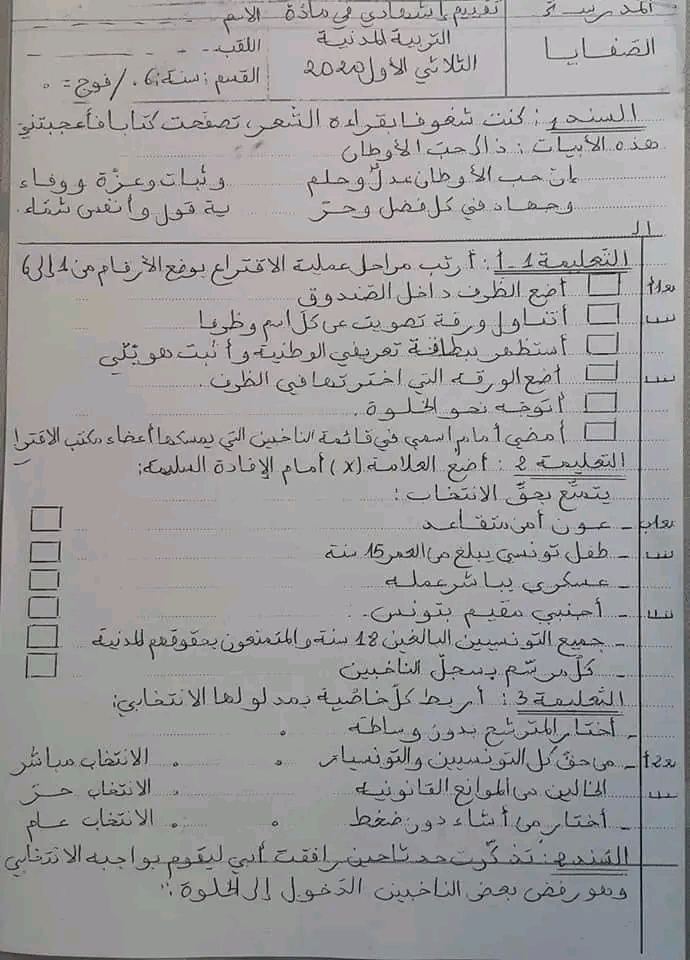 المدرسة
الصفايا
تقييم إشهادي في مادة
التربية المدنية
الثلاثي الأول 2020
الاسم
اللقب
القسم: سنة: 6 / فوج =
السند 1: كنت شغوفا بقراءة الشعر، تصفحت كتابا فأعجبتني
هذه الأبيات: ذاك حب الأوطان
إن حب الأوطان عدل وحلم وثبات وعزّة ووفاء
وجهاد في كل فضل وحرّ ية قول وأنفس شمّاء.
التعليمة 1-أ: أرتب مراحل عملية الاقتراع بوضع الأرقام من 1 إلى 6
مع1أ
أضع الظرف داخل الصّندوق
أتناول ورقة تصويت عن كل اسم وظرفا
أستظهر ببطاقة تعريفي الوطنية وأثبت هويّتي
أضع الورقة التي اخترتها في الظرف.
أتوجّه نحو الخلوة.
أمضي أمام اسمي في قائمة الناخبين التي يمسكها أعضاء مكتب الاقترا
التعليمة 2: أضع العلامة (x) أمام الإفادة السليمة:
يتمتّع بحقّ الانتخاب:
مع1ب
- عون أمن متقاعد
- طفل تونسي يبلغ من العمر 15 سنة
- عسكري يباشر عمله
- أجنبي مقيم بتونس.
- جميع التونسيين البالغين 18 سنة والمتمتعون بحقوقهم المدنية
- كل مرسّم بسجلّ الناخبين
التعليمة 3: أربط كلّ خاصّية بمدلولها الانتخابي:
- أختار المترشح بدون وساطة
مع2أ
- من حق كل التونسيين والتونسيات الانتخاب مباشر
الخالين من الموانع القانونية الانتخاب حرّ
- أختار من أشاء دون ضغط الانتخاب عام
السند 2: تذكّرت حدثا حين رافقت أبي ليقوم بواجبه الانتخابي
وهو رفض بعض الناخبين الدّخول إلى الخلوة: